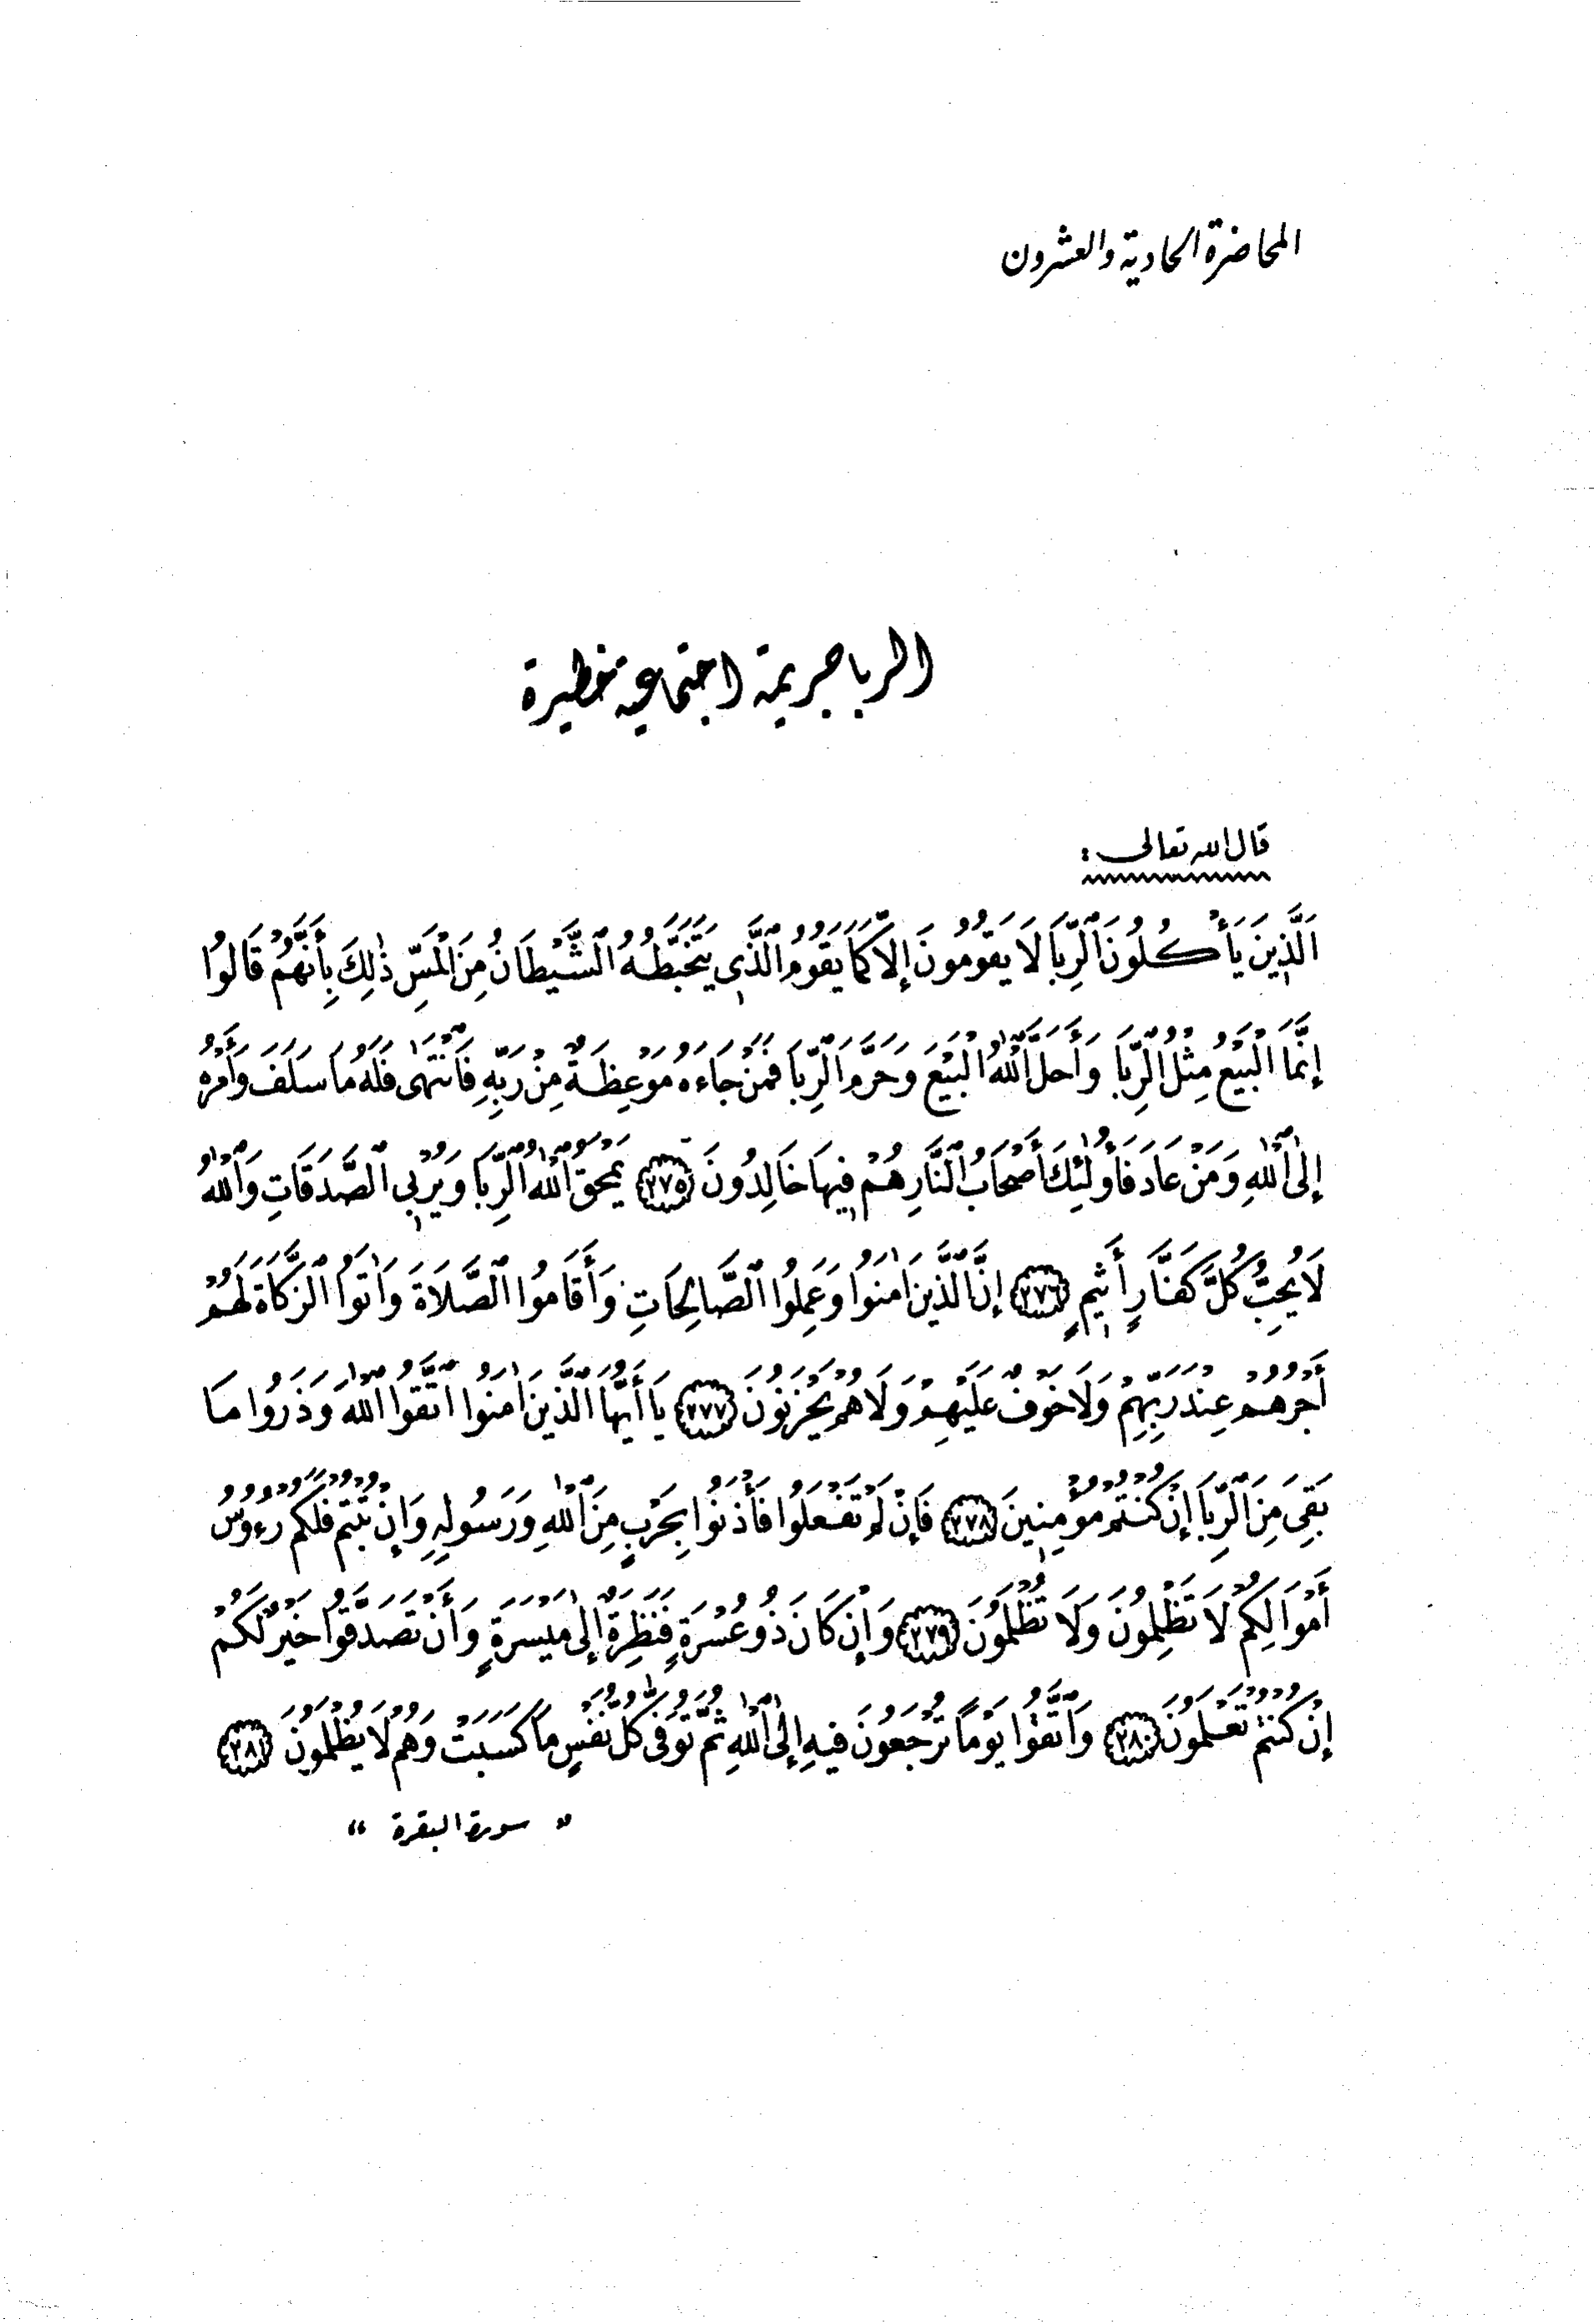 المحاضرة الحادية والعشرون
الربا جريمة اجتماعية خطيرة
قال الله تعالى :
اَلَّذِينَ يَأْكُلُونَ الرِّبَا لَا يَقُومُونَ إِلَّا كَمَا يَقُومُ الَّذِي يَتَخَبَّطُهُ الشَّيْطَانُ مِنَ الْمَسِّ ذٰلِكَ بِأَنَّهُمْ قَالُوا
إِنَّمَا الْبَيْعُ مِثْلُ الرِّبَا وَأَحَلَّ اللّٰهُ الْبَيْعَ وَحَرَّمَ الرِّبَا فَمَنْ جَاءَهُ مَوْعِظَةٌ مِنْ رَبِّهِ فَانْتَهٰى فَلَهُ مَا سَلَفَ وَأَمْرُهُ
إِلَى اللّٰهِ وَمَنْ عَادَ فَأُولٰئِكَ أَصْحَابُ النَّارِ هُمْ فِيهَا خَالِدُونَ ﴿٢٧٥﴾ يَمْحَقُ اللّٰهُ الرِّبَا وَيُرْبِي الصَّدَقَاتِ وَاللّٰهُ
لَا يُحِبُّ كُلَّ كَفَّارٍ أَثِيمٍ ﴿٢٧٦﴾ إِنَّ الَّذِينَ اٰمَنُوا وَعَمِلُوا الصَّالِحَاتِ وَأَقَامُوا الصَّلَاةَ وَاٰتَوُا الزَّكَاةَ لَهُمْ
أَجْرُهُمْ عِنْدَ رَبِّهِمْ وَلَا خَوْفٌ عَلَيْهِمْ وَلَا هُمْ يَحْزَنُونَ ﴿٢٧٧﴾ يَا أَيُّهَا الَّذِينَ اٰمَنُوا اتَّقُوا اللّٰهَ وَذَرُوا مَا
بَقِيَ مِنَ الرِّبَا إِنْ كُنْتُمْ مُؤْمِنِينَ ﴿٢٧٨﴾ فَإِنْ لَمْ تَفْعَلُوا فَأْذَنُوا بِحَرْبٍ مِنَ اللّٰهِ وَرَسُولِهِ وَإِنْ تُبْتُمْ فَلَكُمْ رُءُوسُ
أَمْوَالِكُمْ لَا تَظْلِمُونَ وَلَا تُظْلَمُونَ ﴿٢٧٩﴾ وَإِنْ كَانَ ذُو عُسْرَةٍ فَنَظِرَةٌ إِلٰى مَيْسَرَةٍ وَأَنْ تَصَدَّقُوا خَيْرٌ لَكُمْ
إِنْ كُنْتُمْ تَعْلَمُونَ ﴿٢٨٠﴾ وَاتَّقُوا يَوْمًا تُرْجَعُونَ فِيهِ إِلَى اللّٰهِ ثُمَّ تُوَفّٰى كُلُّ نَفْسٍ مَا كَسَبَتْ وَهُمْ لَا يُظْلَمُونَ ﴿٢٨١﴾
" سورة البقرة "